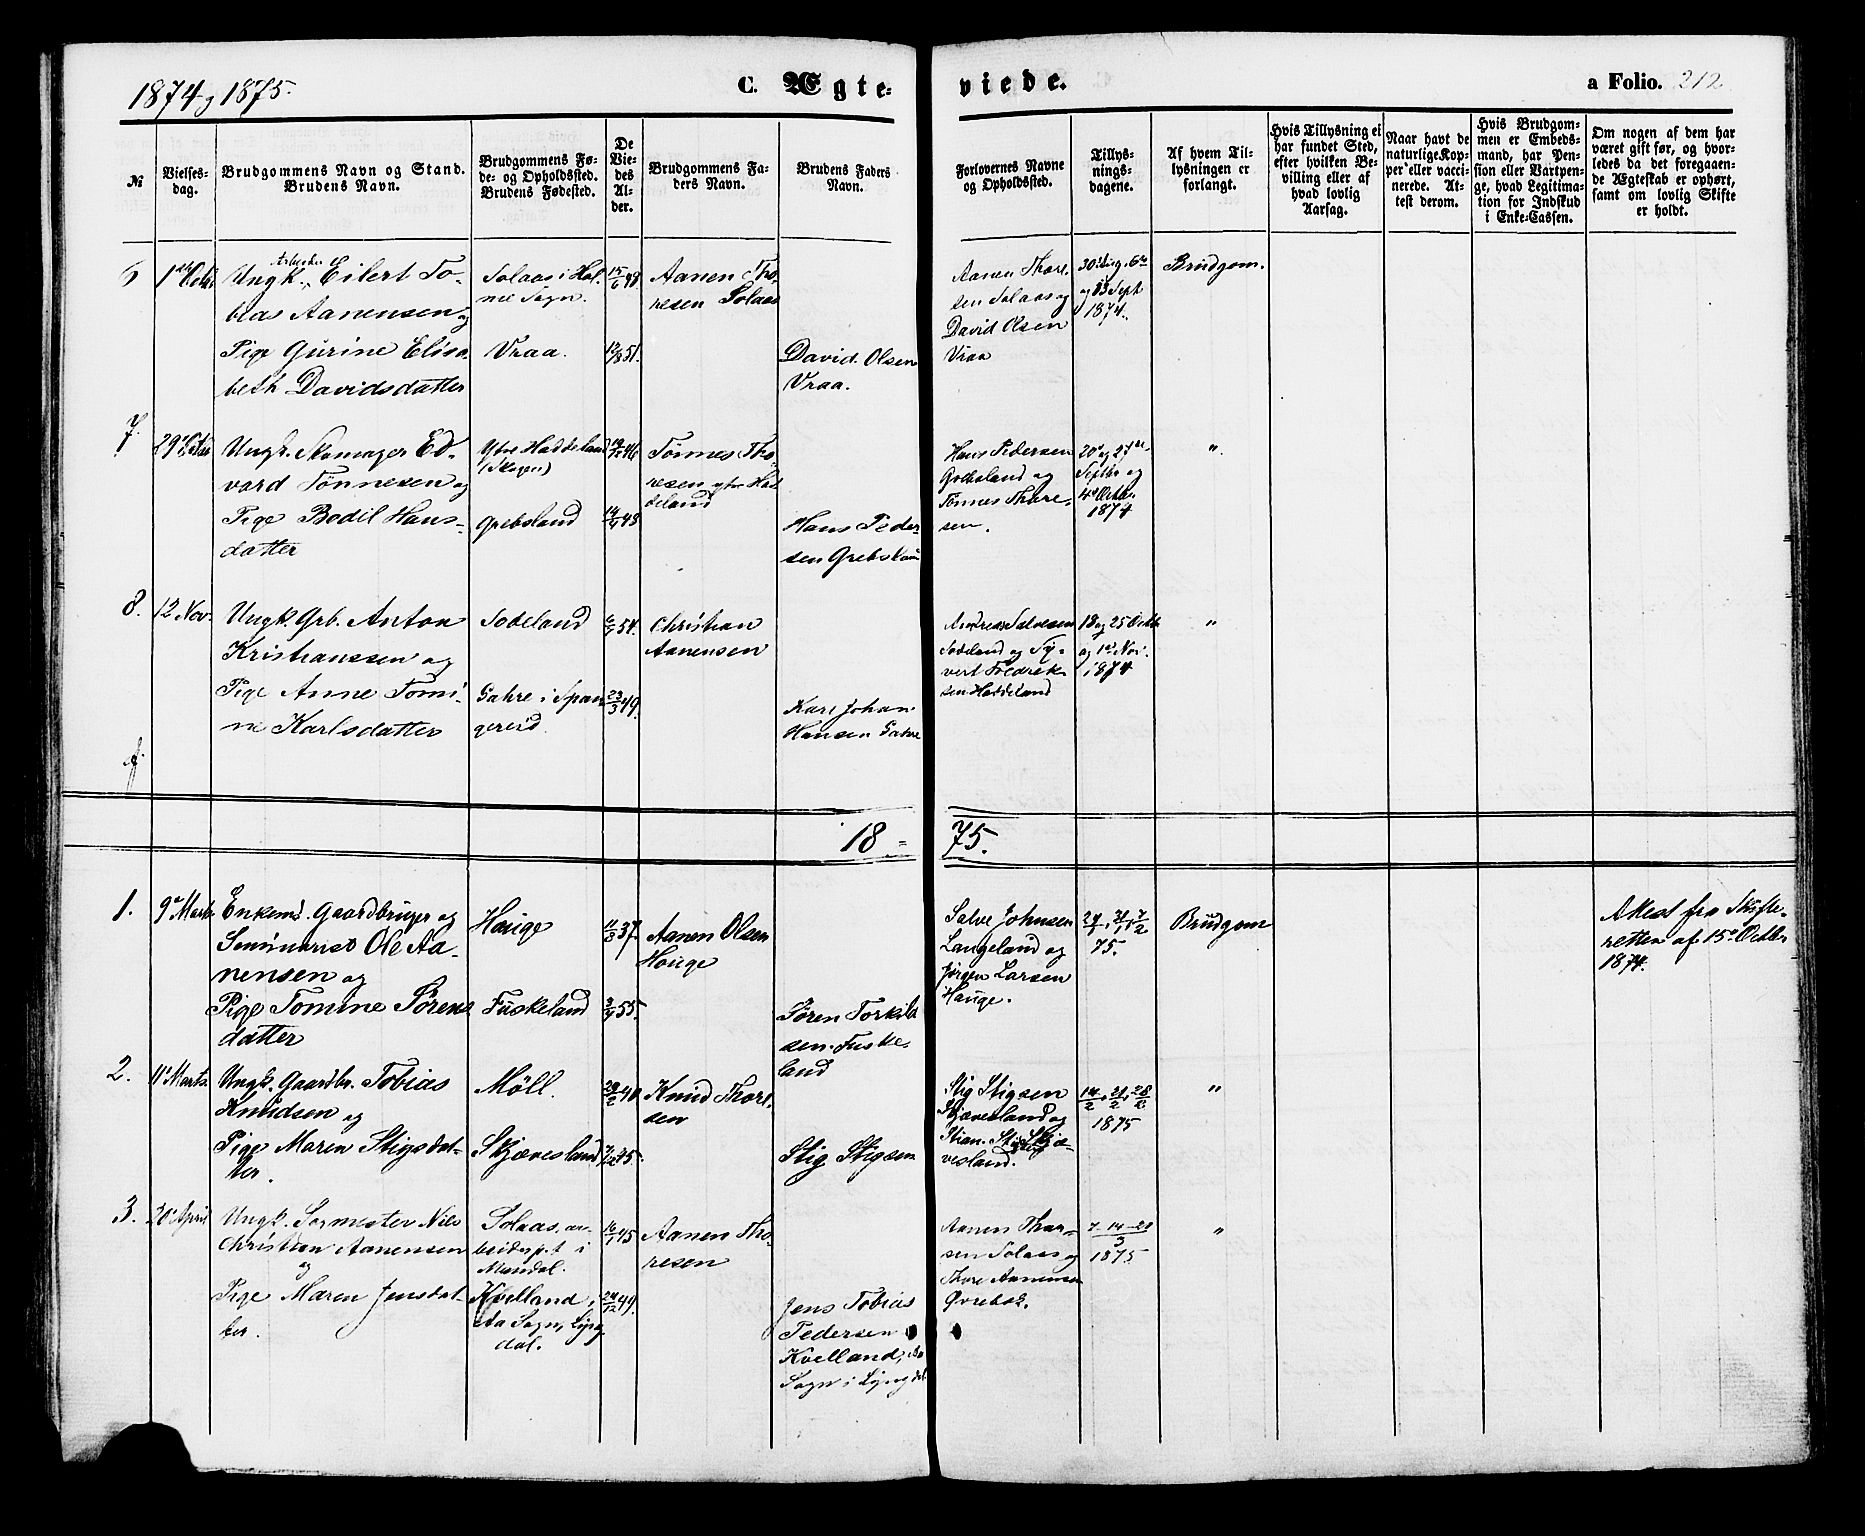 1874 og 1875.
C. Ægte-
viede.
a Folio. 212
№
Vielses-
dag.
Brudgommens Navn og Stand.
Brudens Navn.
Brudgommens Fø-
de- og Opholdssted.
Brudens Fødested.
De
Vie-
des
Al-
der.
Brudgommens Fa-
ders Navn.
Brudens Faders
Navn.
Forlovernes Navne
og Opholdssted.
Tillys-
nings-
dagene.
Af hvem Til-
lysningen er
forlangt.
Hvis Tillysning ei
har fundet Sted,
efter hvilken Be-
villing eller af
hvad lovlig
Aarsag.
Naar havt de
naturlige Kop-
per eller vacci-
nerede. At-
test derom.
Hvis Brudgom-
men er Embeds-
mand, har Pen-
sion eller Vartpen-
ge, hvad Legitima-
tion for Indskud
i Enke-Cassen.
Om nogen af dem har
været gift før, og hvor-
ledes da det foregaaen-
de Ægteskab er ophørt,
samt om lovlig Skifte
er holdt.
6
Ungk. Eilert To-
bias Aanensen og
Pige Gurine Elisa
beth Davidsdatter
Solaas i Hol-
me Sogn.
Vraa.
15/6 48
12/8 51.
Aanen Tho-
resen Solaas
David Olsen
Vraa.
Aanen Thore-
sen Solaas og
David Olsen
Vraa
30 Aug. 6te
og 13 Sept
1874.
Brudgom.
7.
Ungk. Skomager Ed-
vard Tønnesen og
Pige Bodil Hans-
datter
Ytre Haddeland
(Skogen)
Grebsland
46
Tønnes Tho-
resen ytre Had
deland
Hans Peder-
sen Grebsland
Hans Pedersen
Grebsland og
Tønnes Thore-
sen.
20de og 27de
Septbr og
4de Octbr.
1874
"
8.
12 Nov.
Ungk. Grb. Anton
Kristianssen og
Pige Anne Tomi-
ne Karlsdatter
Sodeland
Gahre i Span
gereid.
54.
23/3 49.
Christian
Aanensen
Karl Johan
Hansen Gahre
Andreas Salvesen
Sodeland og Sy-
vert Fredrik-
sen Haddeland
18 og 25 Octbr
og 1ste Nov.
1874
"
18 =
75.
1.
9de Marts
Enkemd. Gaardbruger og
Seminarist Ole Aa-
nensen og
Pige Tomine Sørens
datter
Hauge
Fuskeland
11/8 37.
55.
Aanen Olsen
Houge
Søren Torkild
sen Fuske-
land
Salve Johnsen
Langeland og
Jørgen Larsen
Hauge.
24/1, 31/1, 7/2
75.
Brudgom
Attest fra Skifte-
retten af 15de Octbr
1874.
2.
11te Marts.
Ungk. Gaardbr. Tobias
Knudsen og
Pige Maren Stigsdat-
ter.
Möll.
Skjævesland
40
45.
Knud Thor-
sen
Stig Stigsen
Stig Stigsen
Skjævesland og
Stian Stigsen Skjæ-
vesland.
14/2, 21/2, 28/2
1875
"
3.
20de April
Ungk. Sagmester Nils
Christian Aanensen
og
Pige Maren Jensdat-
ter.
Solaas, ar-
beidspt i
Mandal.
Kvelland,
Aa Sogn, Lyng
dal.
16/1 45
24/12 49.
Aanen Tho-
resen
Jens Tobias
Pedersen
Kvelland, Aa
Sogn i Lyngdal
Aanen Thor-
sen Solaas og
Thore Aanensen
Øvrebø.
7-14-21
3
1875
"